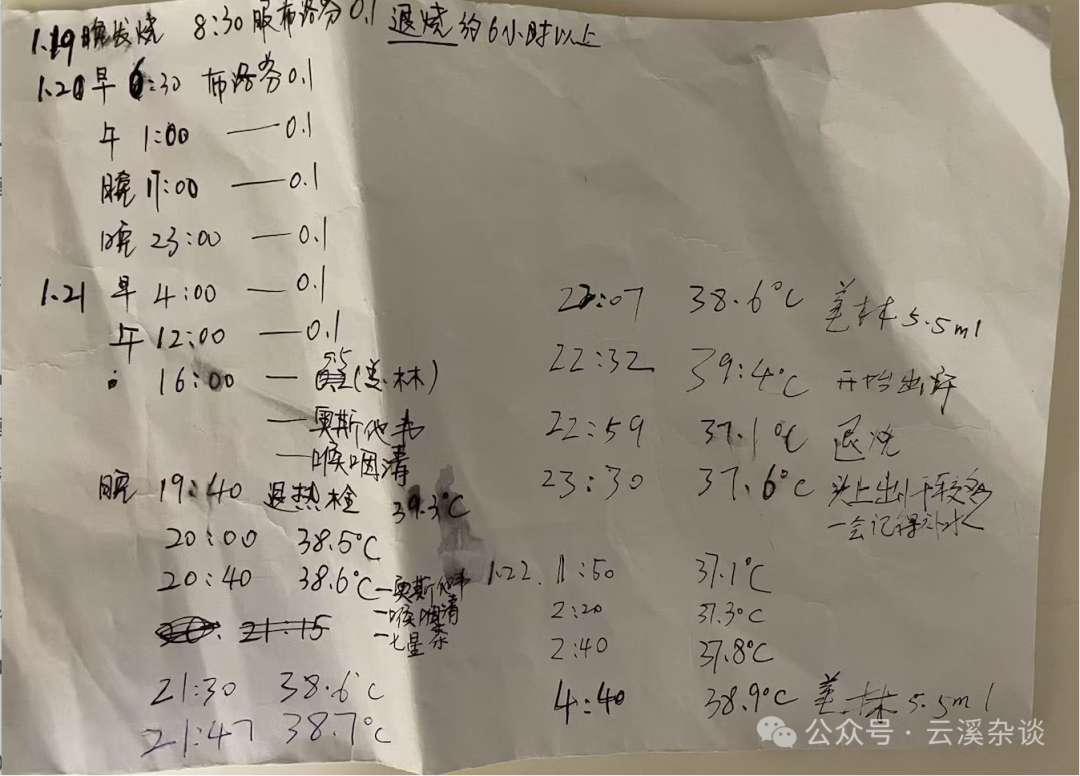 1.19晚发烧 8:30服布洛芬0.1 退烧约6小时以上
1.20早 6:30 布洛芬0.1
午 1:00 —— 0.1
晚 17:00 —— 0.1
晚 23:00 —— 0.1
1.21 早 4:00 —— 0.1
午 12:00 —— 0.1
16:00 — 5.5(美林)
— 奥斯他韦
— 喉咽清
晚 19:40 退热栓 39.3°C
20:00 38.5°C
20:40 38.6°C — 奥斯他韦
— 喉咽清
— 七星茶
21:15
21:30 38.6°C
21:47 38.7°C
22:07 38.6°C 美林 5.5ml
22:32 39:4°C 开始出汗
22:59 37.1°C 退烧
23:30 37.6°C 头上出汗较多
一会记得补水
1.22. 1:50 37.1°C
2:20 37.3°C
2:40 37.8°C
4:40 38.9°C 美林 5.5ml
公众号 · 云溪杂谈